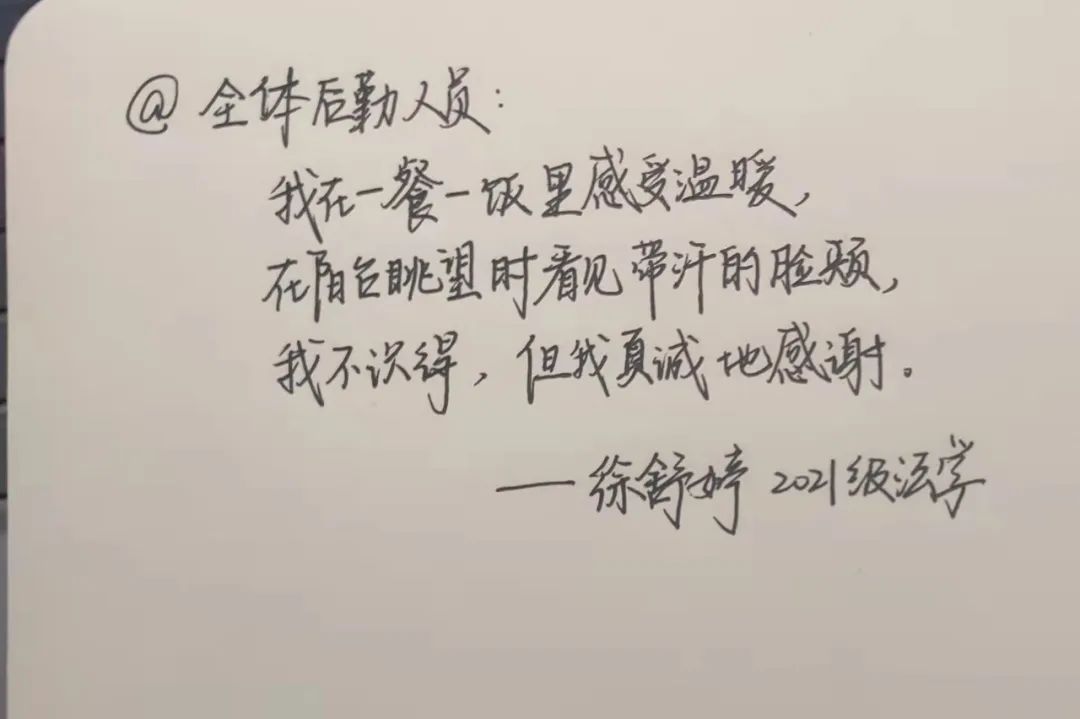 @全体后勤人员:
我在一餐一饭里感受温暖,
在阳台眺望时看见带汗的脸颊,
我不识得,但我真诚地感谢。
——徐舒婷 2021级法学